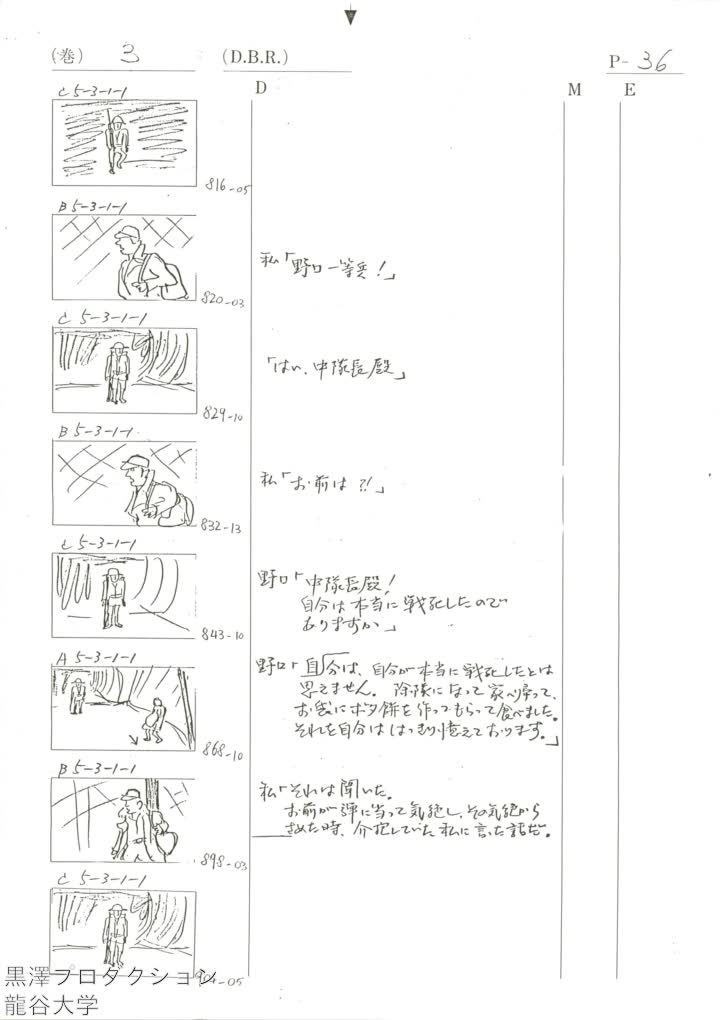 (巻) 3 (D.B.R.) P- 36
D M E
C 5-3-1-1
816-05
B 5-3-1-1
私「野口一等兵!」
820-03
C 5-3-1-1
「はい、中隊長殿」
829-10
B 5-3-1-1
私「お前は?!」
832-13
C 5-3-1-1
野口「中隊長殿!
自分は本当に戦死したので
ありますか」
843-10
A 5-3-1-1
野口「自分は、自分が本当に戦死したとは
思えません。除隊になって家へ帰って、
お袋にボタ餅を作ってもらって食べました。
それを自分ははっきり憶えております。」
868-10
B 5-3-1-1
私「それは聞いた。
お前が弾に当って気絶し、その気絶から
さめた時、介抱していた私に言った話だ。
898-03
C 5-3-1-1
904-05
黒澤プロダクション
龍谷大学